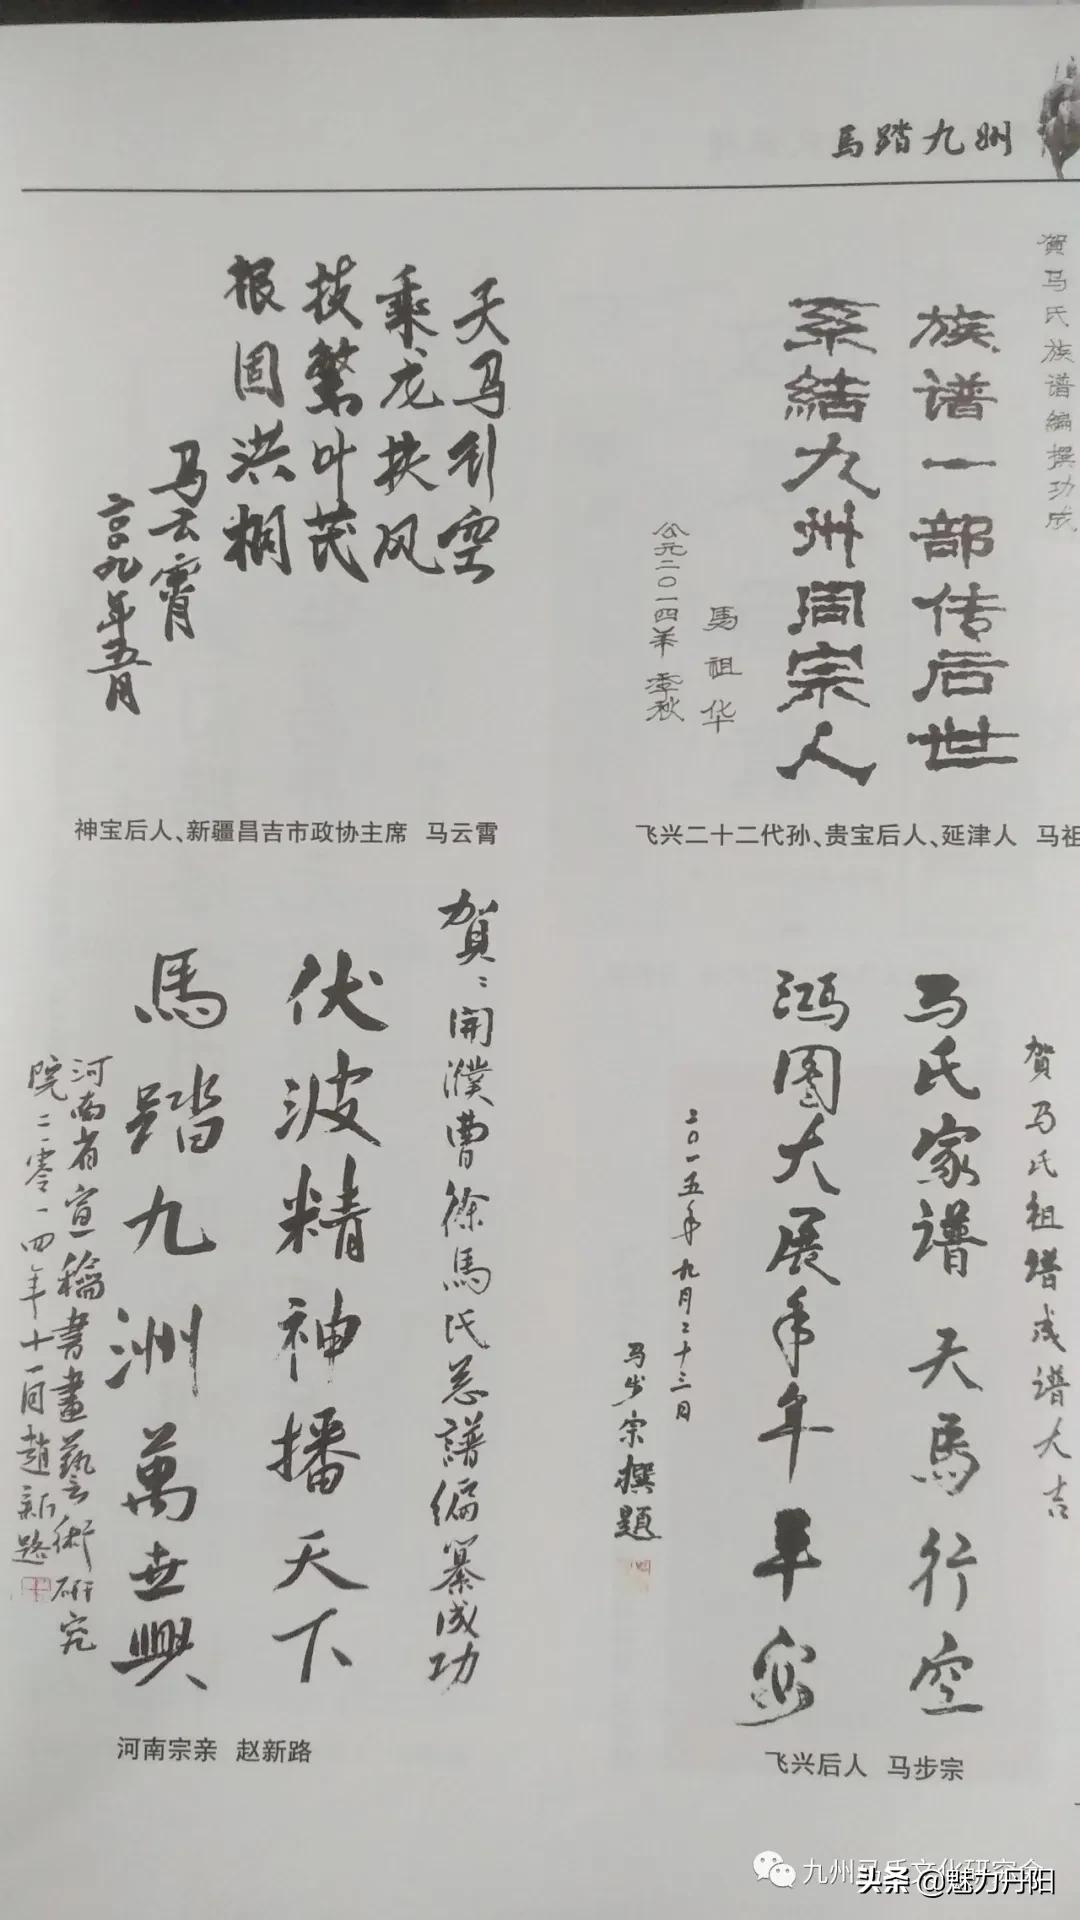 馬踏九州
贺马氏族谱编撰功成
族谱一部传后世
系結九州同宗人
馬祖华
公元二〇一四年季秋
飞兴二十二代孙、贵宝后人、延津人 马祖
天马行空
乘龙扶风
枝繁叶茂
根固洪桐
马云霄
二〇〇九年五月
神宝后人、新疆昌吉市政协主席 马云霄
贺马氏祖谱成谱大吉
马氏家谱天馬行空
鸿图大展年年年
二〇一五年九月二十三日
马步宗撰題
飞兴后人 马步宗
賀:開濮曹徐馬氏总譜编纂成功
伏波精神播天下
馬踏九洲萬世興
河南省宣稿書畫藝術研究
院二零一四年十一月趙新路
河南宗亲 赵新路
九州马氏文化研究会
头条 @魅力丹阳